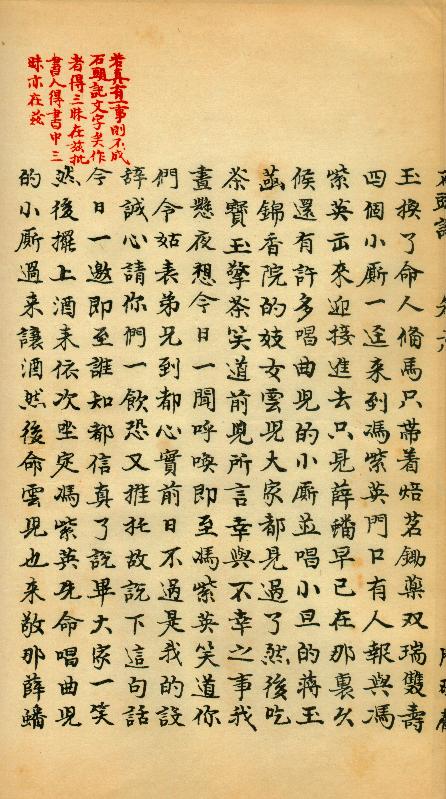 若真有一事則不成
石頭記文字矣作
者得三昧在茲批
書人得書中三
昧亦在茲
玉換了命人俻馬只帶着焙茗鋤藥双瑞雙壽
四個小厮一逕来到馮紫英門口有人報與馮
紫英岀來迎接進去只見薛蟠早已在那裏久
候還有許多唱曲児的小厮並唱小旦的蔣玉
菡錦香院的妓女雲児大家都見過了然後吃
茶寳玉擎茶笑道前児所言幸與不幸之事我
晝懸夜想今日一聞呼喚即至馮紫英笑道你
們令姑表弟兄到都心實前日不過是我的設
辞誠心請你們一飲恐又推托故說下這句話
今日一邀即至誰知都信真了說畢大家一笑
然後擺上酒来依次坐定馮紫英先命唱曲児
的小厮過来讓酒然後命雲児也来敬那薛蟠